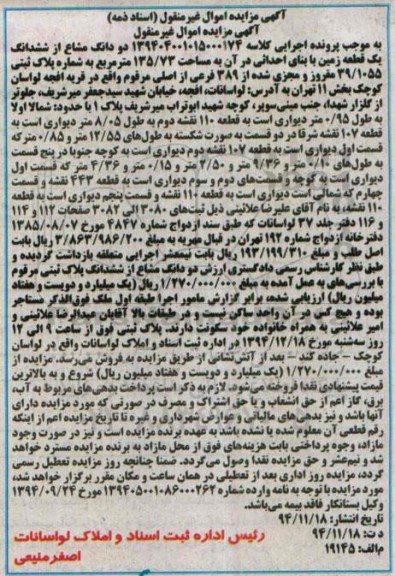 آگهی مزایده اموال غیرمنقول (اسناد ذمه)
آگهی مزایده اموال غیرمنقول
به موجب پرونده اجرایی کلاسه ۱۳۹۴۰۴۰۰۱۰۱۵۰۰۰۱۷۴ دو دانگ مشاع از ششدانگ
یک قطعه زمین با بنای احداثی در آن به مساحت ۱۳۵/۷۳ مترمربع به شماره پلاک ثبتی
۳۹/۱۰۵۵ مفروز و مجزی شده از ۳۸۹ فرعی از اصلی مرقوم واقع در قریه افجه لواسان
کوچک بخش ۱۱ تهران به آدرس: لواسانات، افجه، خیابان شهید سیدجعفر میرشریف، جلوتر
از گلزار شهدا، جنب مینی‌سوپر، کوچه شهید ابوتراب میرشریف پلاک ۱ با حدود: شمالا اولا
به طول ۰/۹۵ متر دیواری است به قطعه ۱۱۰ نقشه دوم به طول ۸/۰۵ متر دیواری است به
قطعه ۱۰۷ نقشه شرقا در دو قسمت به صورت شکسته به طول‌های ۱۲/۵۵ متر و ۰/۸۵ متر که
قسمت اول دیواری است به قطعه ۱۰۷ نقشه دوم دیواری است به کوچه جنوبا در پنج قسمت
به طول‌های ۰/۱۰ متر و ۹/۳۶ متر و ۲/۵۰ متر و ۰/۱۵ متر و ۴/۳۶ متر که قسمت اول
دیواری است به کوچه و قسمت‌های دوم و سوم دیواری است به قطعه ۴۴۳ نقشه و قسمت
چهارم که شمالی است دیواری است به قطعه ۱۱۰ نقشه و قسمت پنجم دیواری است به قطعه
۱۱۰ نقشه، به نام آقای علیرضا علائینی ذیل ثبت‌های ۳۰۸۰ الی ۳۰۸۲ صفحات ۱۱۲ و ۱۱۴
و ۱۱۶ دفتر جلد ۳۷ لواسانات که طبق سند ازدواج شماره ۴۸۴۷ مورخ ۱۳۸۵/۰۸/۰۷
دفترخانه ازدواج شماره ۱۹۲ تهران در قبال مهریه به مبلغ ۳/۸۶۳/۹۸۶/۲۰۰ ریال بابت
اصل طلب و مبلغ ۱۹۳/۱۹۹/۳۱۰ ریال بابت نیم‌عشر اجرایی متعلقه بازداشت گردیده و
طبق نظر کارشناس رسمی دادگستری ارزش دو دانگ مشاع از ششدانگ پلاک ثبتی مرقوم
با بررسی‌های به عمل آمده به مبلغ ۱/۲۷۰/۰۰۰/۰۰۰ ریال (یک میلیارد و دویست و هفتاد
میلیون ریال) ارزیابی شده، برابر گزارش مامور اجرا طبقه اول ملک فوق‌الذکر مستاجر
بوده و هیچ کس در آن واحد ساکن نیست و در طبقات بالا آقایان عبدالرضا علائینی و
امیر علائینی به همراه خانواده خود سکونت دارند. پلاک ثبتی فوق از ساعت ۹ الی ۱۲
روز سه‌شنبه مورخ ۱۳۹۴/۱۲/۱۸ در اداره ثبت اسناد و املاک لواسانات واقع در لواسان
کوچک – جاده کند – بعد از آتش‌نشانی از طریق مزایده به فروش می‌رسد. مزایده از
مبلغ ۱/۲۷۰/۰۰۰/۰۰۰ (یک میلیارد و دویست و هفتاد میلیون ریال) شروع و به بالاترین
قیمت پیشنهادی نقدا فروخته می‌شود. لازم به ذکر است پرداخت بدهی‌های مربوط به آب،
برق، گاز اعم از حق انشعاب و یا حق اشتراک و مصرف در صورتی که مورد مزایده دارای
آنها باشد و نیز بدهی‌های مالیاتی و عوارض شهرداری و غیره تا تاریخ مزایده اعم از اینکه
رقم قطعی آن معلوم شده یا نشده باشد به عهده برنده مزایده است و نیز در صورت وجود
مازاد، وجوه پرداختی بابت هزینه‌های فوق از محل مازاد به برنده مزایده مسترد خواهد
شد و نیم‌عشر و حق مزایده نقدا وصول می‌گردد. ضمنا چنانچه روز مزایده تعطیل رسمی
گردد، مزایده روز اداری بعد از تعطیلی در همان ساعت و مکان مقرر برگزار خواهد شد،
مورد مزایده با توجه به نامه وارده شماره ۱۳۹۴۰۵۰۰۱۰۸۶۰۰۰۲۶۲ مورخ ۱۳۹۴/۰۹/۲۴
وکیل بستانکار فاقد بیمه می‌باشد.
تاریخ انتشار: ۹۴/۱۱/۱۸
د ت: ۹۴/۱۱/۱۸
م‌الف: ۱۹۱۴۵
رئیس اداره ثبت اسناد و املاک لواسانات
اصغر منیعی